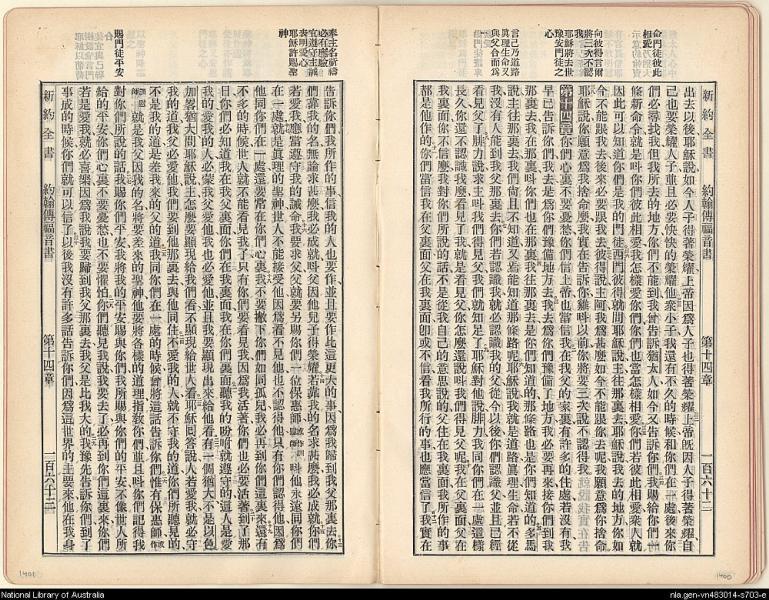 新約全書 約翰傳福音書 第十四章 一百六十二
命門徒彼此相愛
向彼得言爾將三次不認我
耶穌將去世豫安門徒之心
言己乃道路真理生命又與父合而為一
出去以後耶穌說如今人子得著榮耀上帝因為人子也得著榮耀上帝既因人子得著榮耀自
己也要榮耀人子並且必要快快的榮耀他衆小子我還有不久的時候和你們在一處後來你
們必尋找我但我所去的地方你們不能到我曾告訴猶太人如今又告訴你們我賜給你們一
條新命令就是叫你們彼此相愛我怎樣愛你們你們也當怎樣相愛你們若彼此相愛衆人就
因此可以知道你們是我的門徒西門彼得就問耶穌說主往那裏去耶穌說我去的地方你如
今不能跟我去後來必要跟我去彼得說主阿我為甚麼如今不能跟你去呢我願意為你捨命
耶穌說你願意為我捨命麼我實在告訴你雞叫以前你將要三次說不認得我
第十四章 你們心裏不要憂愁你們信上帝也當信我在我父的家裏有許多的住處若沒有我
早已告訴你們我去是為你們豫備地方去我去為你們豫備了地方我必要再來接你們到我
那裏去我在那裏叫你們也在那裏我往那裏去是你們知道的那條路也是你們知道的多馬
說主往那裏去我們尚且不知道又焉能知道那條路呢耶穌說我就是道路真理生命若不從
我沒有人能到我父那裏去你們若認識我就必認識我的父從今以後你們認識父並且已經
看見父了腓力說求主叫我們得見父我們就知足了耶穌對他說腓力我同你們在一處這樣
長久你還不認識我麼看見了我就是看見父你怎麼還說叫我們得見父呢我在父裏面父在
我裏面你不信麼我對你們所說的話不是從我自己的意思說的父住在我裏面我所作的事
都是他作的你們當信我在父裏面父在我裏面即或不信看我所行的事也應當信了我實在
奉主名祈禱必有應驗
宜遵守主誡表明愛心
耶穌許賜聖神
賜門徒平安
告訴你們我所作的事信我的人也要作並且要作比這更大的事因為我歸到我父那裏去你
們靠我的名無論求甚麼我必成就叫父因他兒子得榮耀若靠我的名求甚麼我必成就你們
若愛我應當遵守我的誡命我要求父父就要另賜你們一位保惠師叫他永遠同你們
在一處就是真理的聖神世人不能接受他因為看不見他也不認得他只有你們認得他因為
他同你們在一處還要常在你們心裏我不要撇下你們如同孤兒我必再到你們這裏來還有
不多的時候世人就不能看見我了只有你們要看見我因為我活著你們也必要活著到了那
日你們必知道我在我父裏面你們在我裏面我在你們裏面聽我的吩咐就遵守的這人是愛
我的愛我的人必受我父愛他我也必愛他並且我要顯現出來給他看有一個猶大不是以色
加畧猶大問耶穌說主怎麼要顯現給我們看不顯現給世人看耶穌回答說人若愛我就必守
我的道我父必愛他我們要到他那裏去與他同住不愛我的人就不守我的道你們所聽見的
不是我的道是差我來的父的道我同你們在一處的時候曾將這話告訴你們惟有保惠師
就是我父因我的名將要差來的聖神他要將各樣的道理指教你們並且叫你們記得我
對你們所說的話我賜你們平安我將我的平安賜與你們我所賜與你們的平安不像世人所
給的平安你們心裏不要憂愁也不要懼怕你們聽見我說我要去了必再到你們這裏來你們
若是愛我就必喜樂因為我說我要歸到我父那裏去我父是比我大的我豫先告訴你們到了
事成的時候你們就可以信了以後我沒有許多話告訴你們因為這世界的主要來他在我身
新約全書 約翰傳福音書 第十四章 一百六十三
National Library of Australia
nla.gen-vn483014-s703-e